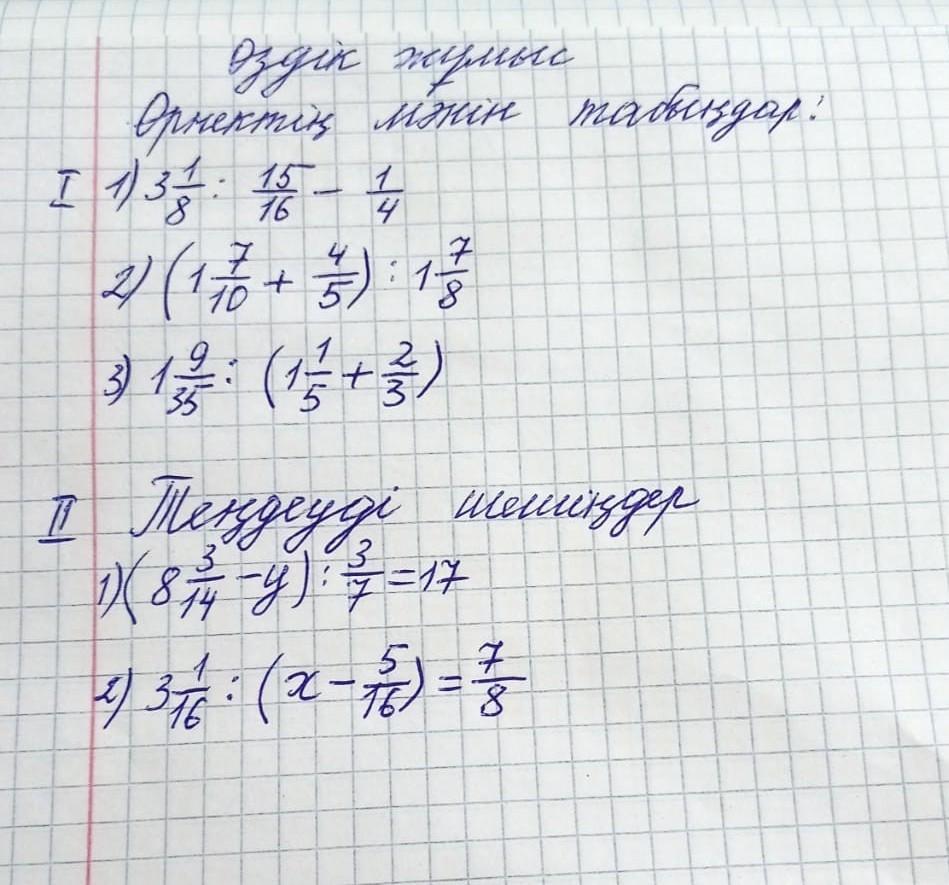 Өздік жұмыс
Өрнектің мәнін табыңдар:
I 1) 3 1/8 : 15/16 - 1/4
2) (1 7/10 + 4/5) : 1 7/8
3) 1 9/35 : (1 1/5 + 2/3)
II Теңдеуді шешіңдер
1) (8 3/14 - y) : 3/7 = 17
2) 3 1/16 : (x - 5/16) = 7/8